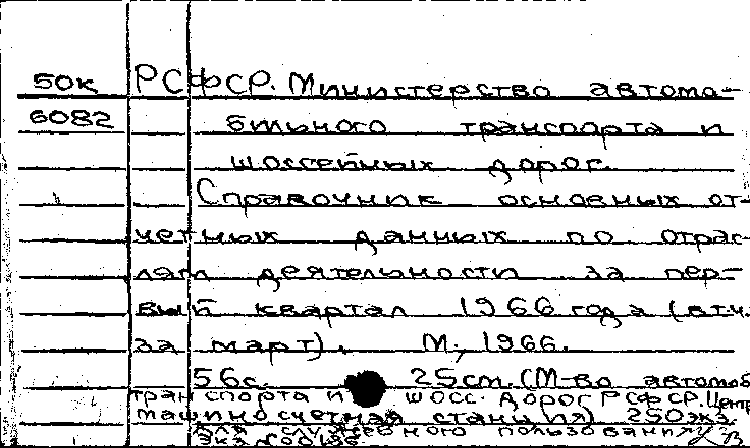 50к РСФСР. Министерство автомо-
6082 бильного транспорта и
шоссейных дорог.
Справочник основных от-
четных данных по отрас-
лям деятельности за пер-
вый квартал 1966 года (в т.ч.
за март). М., 1966.
56с. 25см. (М-во автомоб
транспорта и шосс. дорог РСФСР. Центр
машиносчетная станция) 250экз.
для служебного пользования